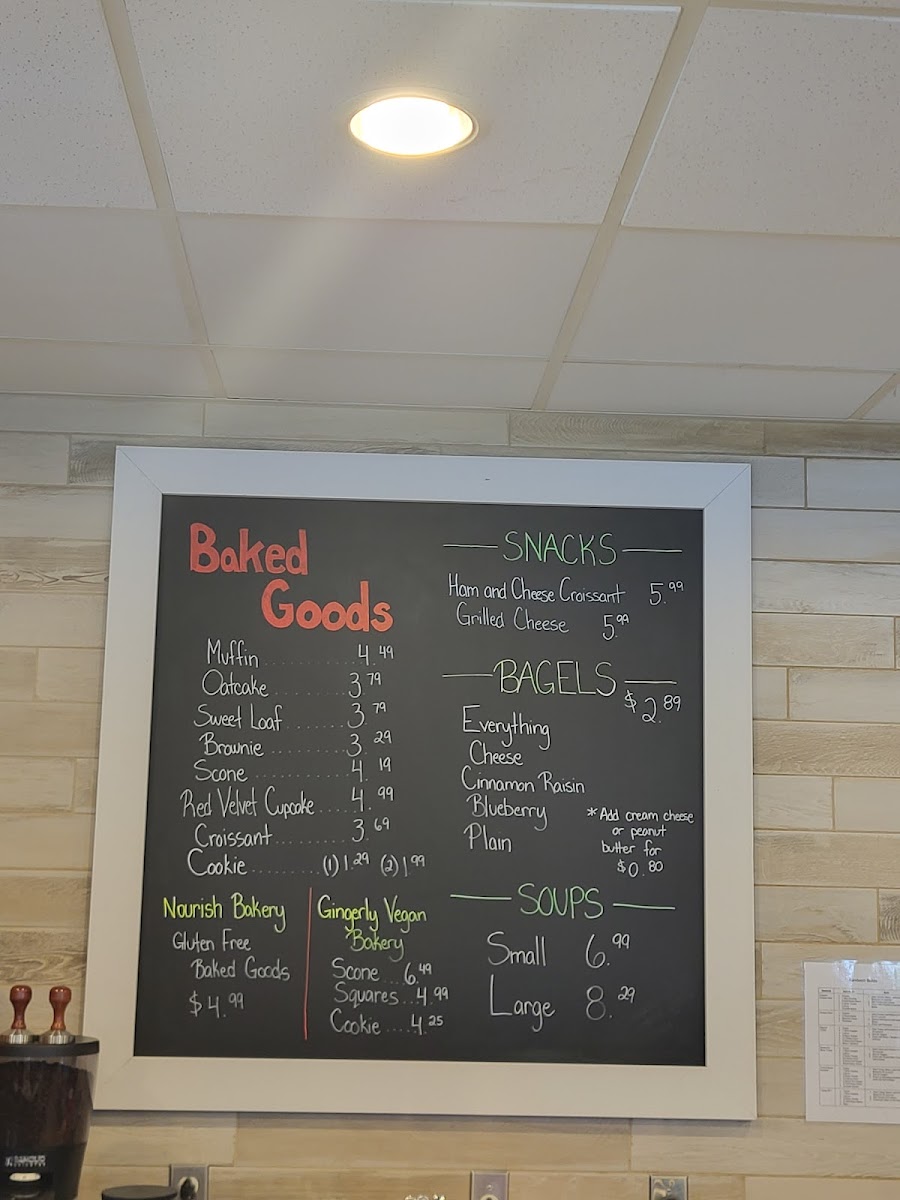 Baked
Goods
Muffin ............ 4.49
Oatcake .......... 3.79
Sweet Loaf ....... 3.79
Brownie .......... 3.29
Scone ............ 4.19
Red Velvet Cupcake .... 4.99
Croissant .......... 3.69
Cookie .......... (1) 1.29 (2) 1.99
Nourish Bakery
Gluten Free
Baked Goods
$4.99
Gingerly Vegan
Bakery
Scone ... 6.49
Squares .. 4.99
Cookie .... 4.25
SNACKS
Ham and Cheese Croissant 5.99
Grilled Cheese 5.99
BAGELS
$2.89
Everything
Cheese
Cinnamon Raisin
Blueberry
Plain
*Add cream cheese
or peanut
butter for
$0.80
SOUPS
Small 6.99
Large 8.29